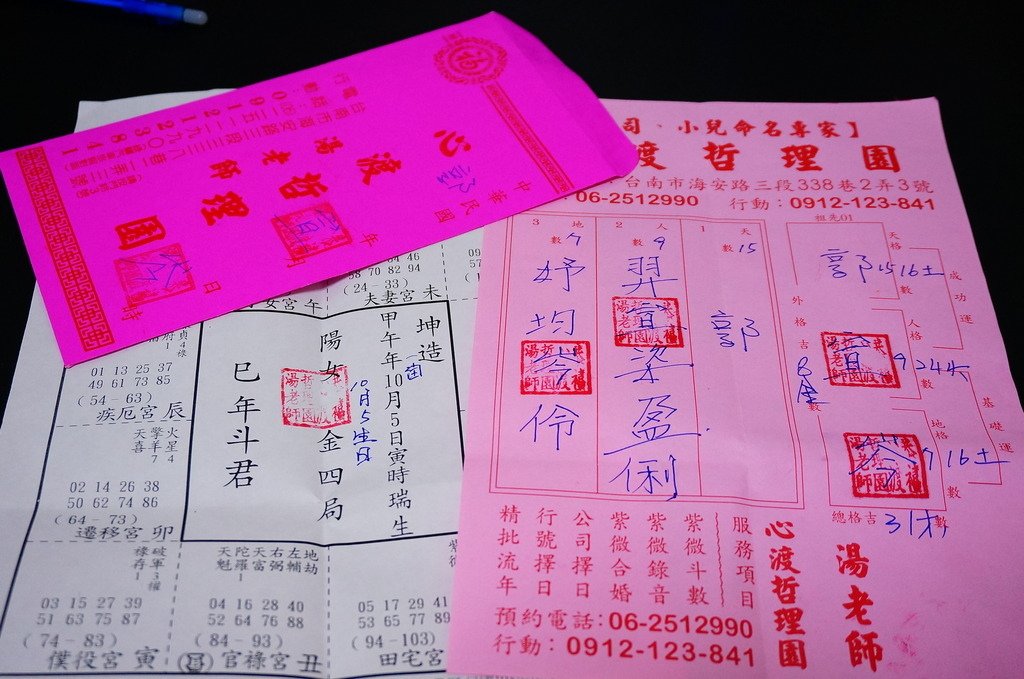 心渡哲理園
湯老師
中華民國
年
月
日
時
郭
宜
岑
司、小兒命名專家】
渡哲理園
台南市海安路三段338巷2弄3號
06-2512990 行動：0912-123-841
祖先01
3 地數 7
2 人數 9
1 天數 15
妤均岑伶
羿宜梁盈俐
郭
郭 15 16土
宜 9 24火
岑 7 16土
天格數
人格數
地格數
外格吉數
成功運
基礎運
8金
總格吉數
31木
服務項目
紫微斗數
紫微錄音
紫微合婚
公司擇日
行號擇日
精批流年
心渡哲理園
湯老師
預約電話：06-2512990
行動：0912-123-841
46
58 70 82 94
(24－33)
夫妻宮 未
女宮 午
坤造
甲午年10月5日寅時瑞生
10月5生日
陽女
金四局
巳年斗君
01 13 25 37
49 61 73 85
(54－63)
疾厄宮 辰
火星4
擎羊7
天喜
02 14 26 38
50 62 74 86
(64－73)
遷移宮 卯
破軍3權
祿存1
03 15 27 39
51 63 75 87
(74－83)
僕役宮 寅
地劫
左輔
右弼
天富
陀羅1
天魁
04 16 28 40
52 64 76 88
(84－93)
官祿宮 丑
05 17 29 41
53 65 77 89
(94－103)
田宅宮